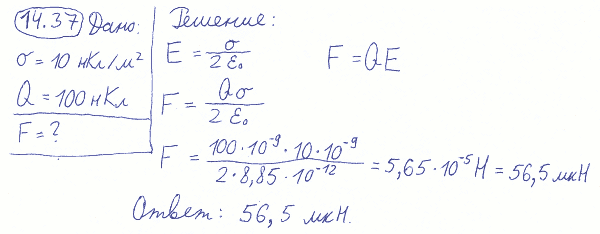 14.37 Дано:
σ = 10 нКл/м²
Q = 100 нКл
F = ?
Решение:
E = σ / 2 ε₀    F = QE
F = Qσ / 2 ε₀
F = 100 · 10⁻⁹ · 10 · 10⁻⁹ / 2 · 8,85 · 10⁻¹² = 5,65 · 10⁻⁵ Н = 56,5 мкН
Ответ: 56,5 мкН.